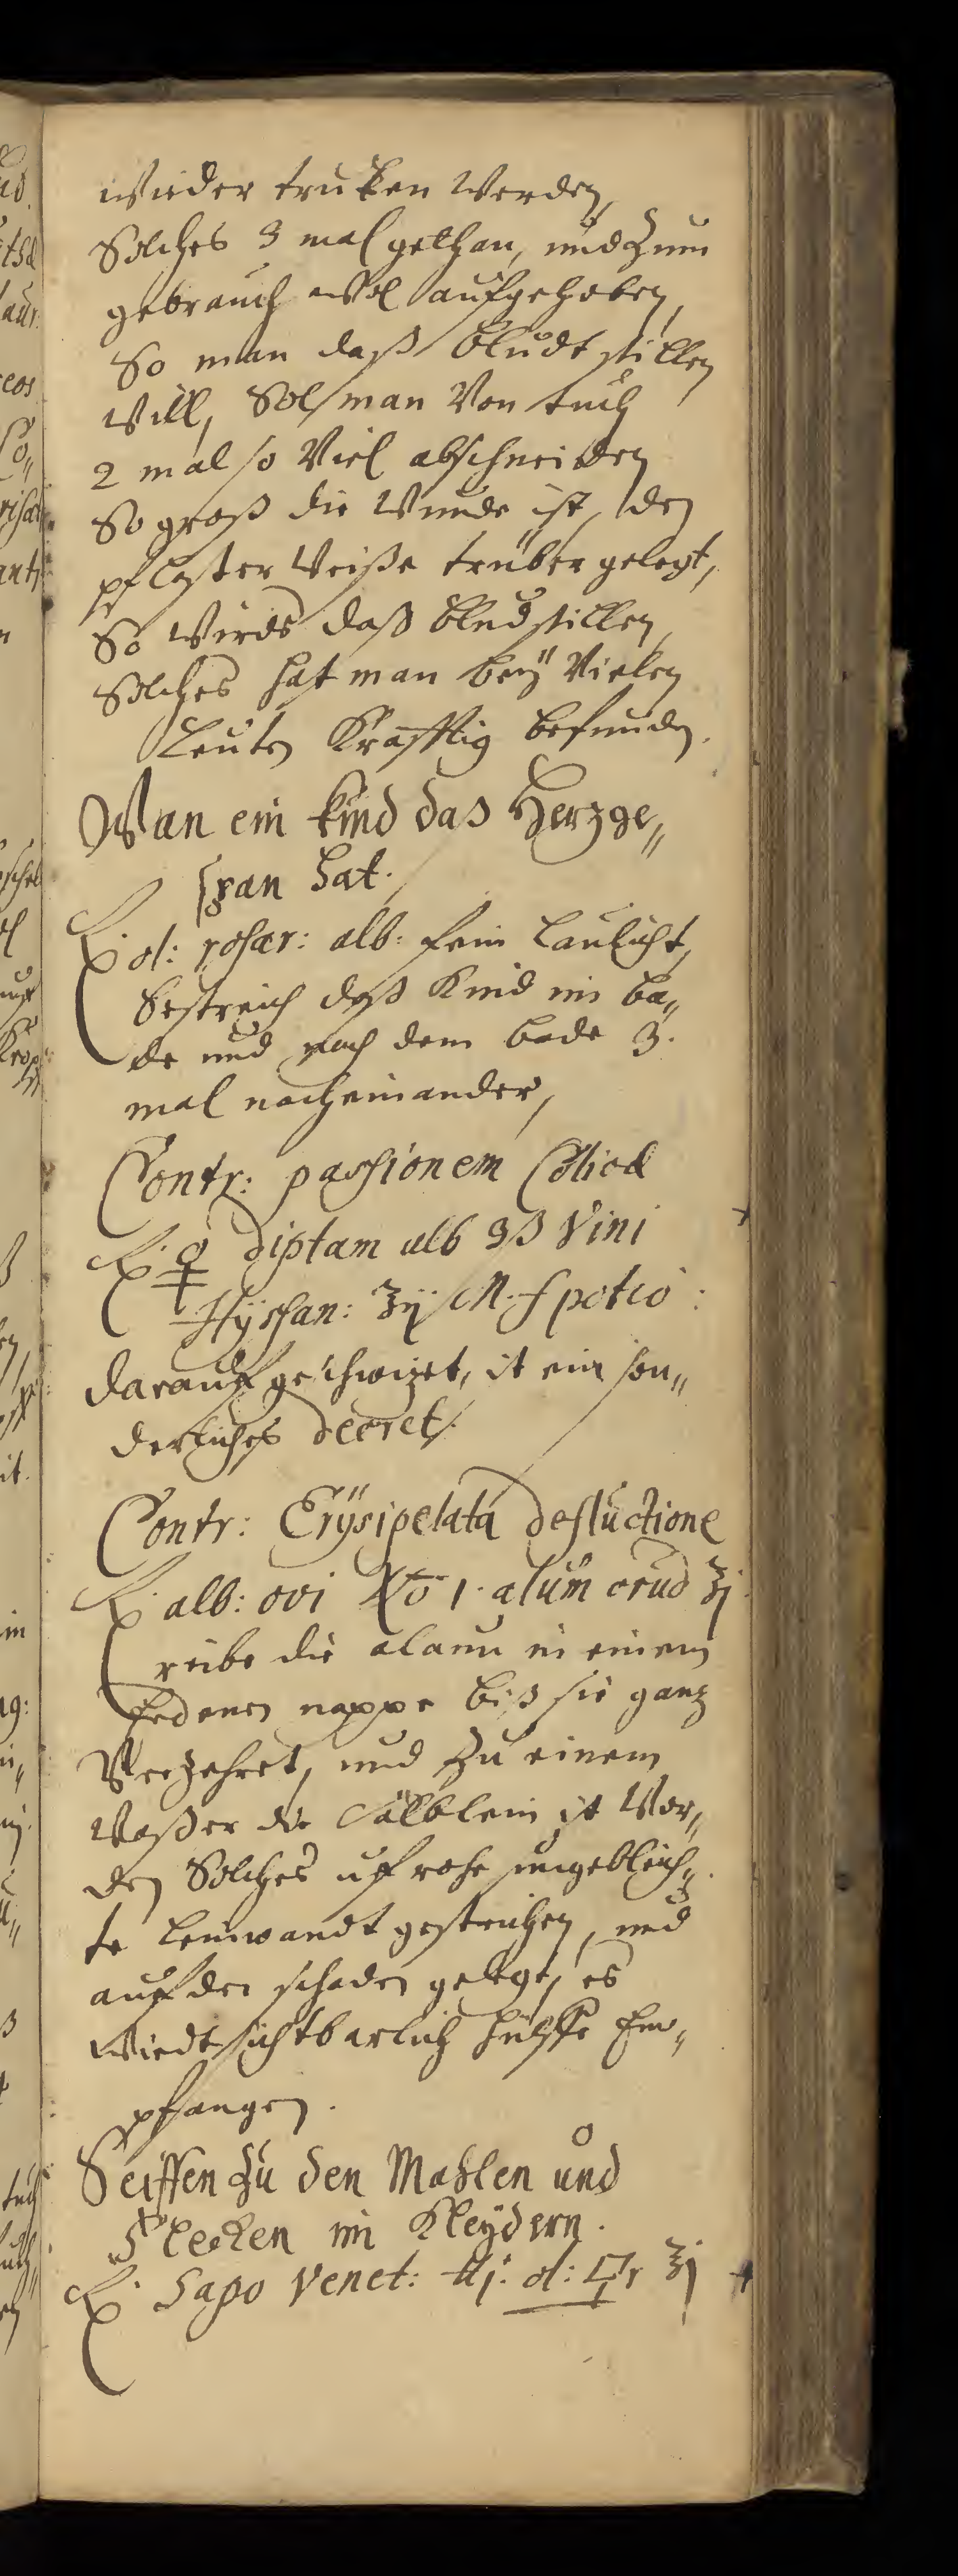 wieder truken werden,
Solches 3 mal gethan, und zum
gebrauch wol aufgehoben,
So man daß bludt stillen
will, Sol man von tuch
2 mal so viel abschneiden
So groß die wunde ist, den
pflaster weiße trüber gelegt,
So wirds daß blud stillen,
Solches hat man beÿ vielen
Leuten Krafftig befunden.
Wan ein kind das Herzge„
span hat.
℞. ol: rosar: alb: fein laulicht,
bestreich daß Kind im ba„
de und nach dem bade 3.
mal nacheinander,
Contr: passionem Colicā
℞. ☿ diptam alb ℈ß Vini
Hÿspan: ℥ij M. f potio:
darauf geschwizet, ist ein son„
derliches secret.
Contr: Erÿsipelata defluctione
℞. alb: ovi No 1. alum crud ℥j
reibe die alaun in einem
erdenen nappe biß sie ganz
Verzehret, und zu einem
Waßer oder Sälblein ist Wor„
den Solches uf rohe ungebleich„
te leinwandt gestrichen, und
auf den schaden gelegt, es
wirdt sichtbarlich hülffe Em„
pfangen.
Seiffen zu den Mahlen und
Flecken in Kleÿdern.
℞. Sapo Venet: ol: ℥j